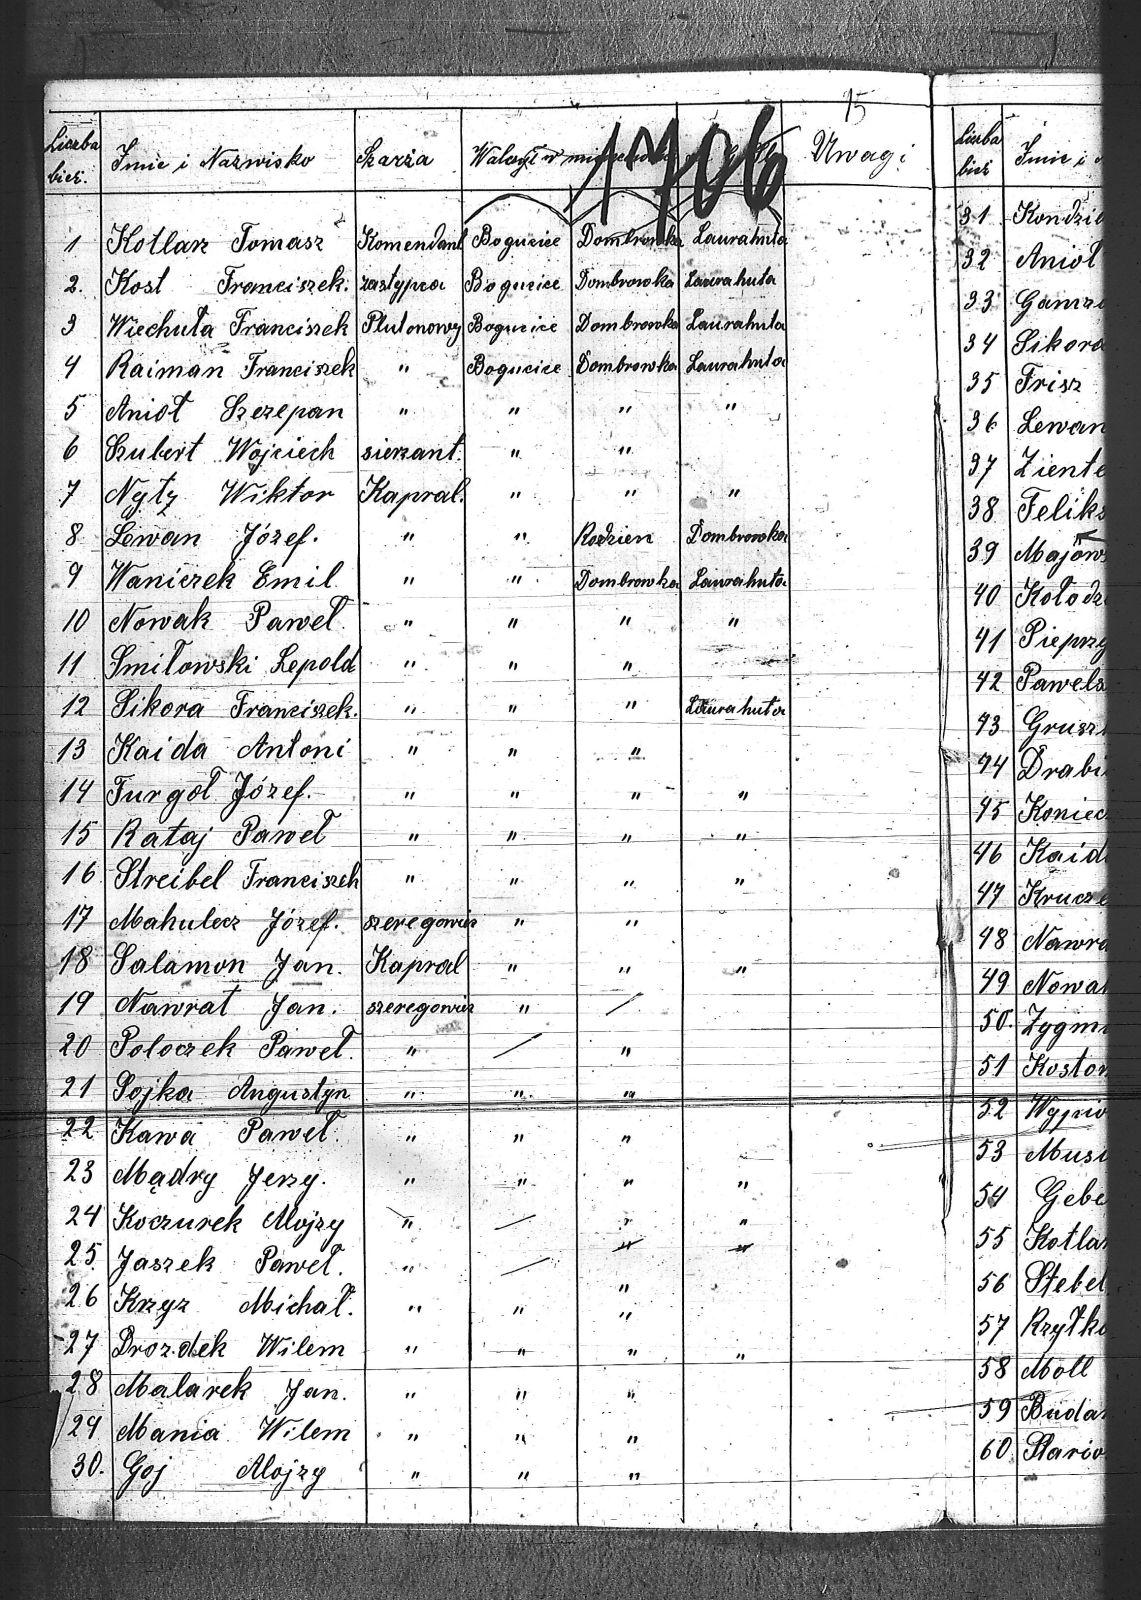 15
1706
Liczba bież. Imie i Nazwisko Szarża Walczył w Uwagi
1 Kotlarz Tomasz Komendant Bogucice Dombrowka Laurahuta
2. Kost Franciszek. zastypca Bogucice Dombrowka Laurahuta
3 Wiechuła Franciszek Plutonowy Bogucice Dombrowka Laurahuta
4 Raiman Franciszek " Bogucice Dombrowka Laurahuta
5 Anioł Szczepan " " " "
6 Szubert Wojciech sierzant. " "
7 Wiktor Kapral. " " "
8 Lewan Józef. " " Rozzien Dombrowka
9 Waniczek Emil " " Dombrowka Laurahuta
10 Nowak Paweł " " " "
11 Smiłowski Lepold " " "
12 Sikora Franciszek. " " " Laurahuta
13 Kaida Antoni " " "
14 Furgoł Józef. " " " "
15 Rataj Paweł " " " "
16 Streibel Franciszek " " " "
17 Mahulecz Józef. szeregowiec " "
18 Salamon Jan. Kapral " " "
19 Nawrat Jan. szeregowiec " /
20 Poloczek Paweł. " / "
21 Sojka Angustyn " " "
22 Kawa Paweł. " " "
23 Mądry Jerzy. " " " "
24 Koczurek Alojzy " / " "
25 Jaszek Paweł. " / " "
26 Krzyz Michał. " " "
27 Drozdek Wilem " " " "
28 Malarek Jan. " " "
29 Mania Wilem " " "
30. Goj Alojzy " " "
Liczba bież Imie i
31 Kondzie
32 Anioł
33 Gamz
34 Sikora
35 Frisz
36 Lewan
37 Ziente
38 Feliks
39 Majows
40 Kołodz
41 Pieprzy
42 Pawels
43 Grusz
44 Drabi
45 Koniec
46 Kaid
47 Krucze
48 Nawra
49 Nowak
50. Zygm
51 Kostor
52
53 Musi
54 Gebe
55 Kotlar
56 Stebel
57 Rzytk
58 Moll
59 Budar
60. Stario